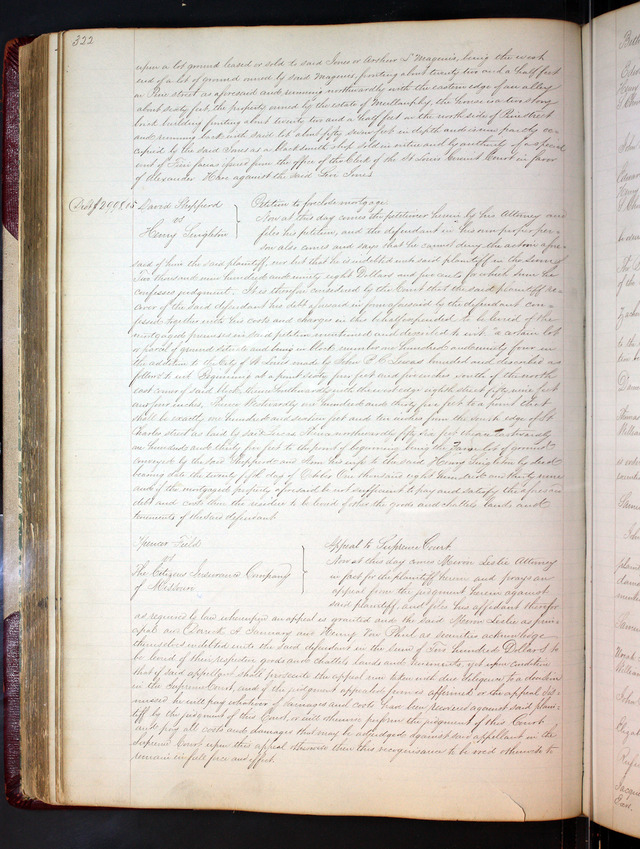 322
upon a lot ground leased or sold to said Jones or Arthur L Magenis, being the west
end of a lot of ground owned by said Magenis, fronting about twenty two and a half feet
on Pine street as aforesaid and running northwardly with the eastern edge of an alley
about sixty feet the property owned by the estate of Mullanphy, the house is a two story
brick building fronting about twenty two and a half feet on the north side of Pine street
and running back with said lot about fifty seven feet in depth and is now partly oc-
cupied by the said Jones as a Blacksmith shop sold in virtue and by authority of a special
writ of Fieri facias issued from the office of the Clerk of the St Louis Circuit Court in favor
of Alexander Hare against the said Jones
David Sheppard
vs
Henry Singleton
Petition to foreclose mortgage
Now at this day comes the petitioner herein by his Attorney and
files his petition, and the defendant in his own proper per-
son also comes and says that he cannot deny the action afore-
said of him the said plaintiff, nor but that he is indebted unto said plaintiff in the sum of
Two thousand nine hundred and ninety eight Dollars and five cents for which sum he
confesses judgment. It is therefore considered by the Court that the said plaintiff re-
cover of the said defendant his debt aforesaid in form aforesaid by the defendant con-
fessed together with his costs and charges in this behalf expended to be levied of the
mortgaged premises in said petition mentioned and described to wit, "a certain lot
or parcel of ground situate and being in block number one hundred and ninety four in
the addition to the City of St Louis made by John B C Lucas bounded and described as
follows to wit. Beginning at a point sixty five feet and five inches south of the north
east corner of said block, thence Southwardly with the west edge eighth street fifty nine feet
and five inches, thence Westwardly one hundred and thirty five feet to a point which
shall be exactly one hundred and sixteen feet and ten inches from the south edge of St
Charles street as laid by said Lucas, thence northwardly fifty six feet thence eastwardly
one hundred and thirty five feet to the point of beginning being the same lot of ground
conveyed by the said Sheppard and Ann his wife to the said Henry Singleton by deed
bearing date the twenty fifth day of October One thousand eight hundred and thirty nine
and if the mortgaged property aforesaid be not sufficient to pay and satisfy the aforesaid
debt and costs then the residue to be levied of other the goods and chattels, lands and
tenements of the said defendant
Spencer Field
vs
The Citizens Insurance Company
of Missouri
Appeal to Supreme Court
Now at this day comes Miron Leslie Attorney
in fact for the plaintiff herein and prays an
appeal from the judgment herein against
said plaintiff and files his affidavit therefor
as required by law whereupon an appeal is granted and the said Miron Leslie as prin-
cipal and Derrick A January and Henry Von Phul as securities acknowledge
themselves indebted unto the said defendant in the sum of Two hundred Dollars to
be levied of their respective goods and chattels lands and tenements, yet upon condition
that if said appellant shall prosecute the appeal now taken with due diligence to a decision
in the Supreme Court, and if the judgment appealed from is affirmed or the appeal dis-
missed he will pay whatever of damages and costs have been recovered against said plain-
tiff by the judgment of this Court, or will otherwise perform the judgment of this Court
and pay all costs and damages that may be adjudged against said appellant in the
Supreme Court upon this appeal otherwise then this recognizance to be void otherwise to
remain in full force and effect.